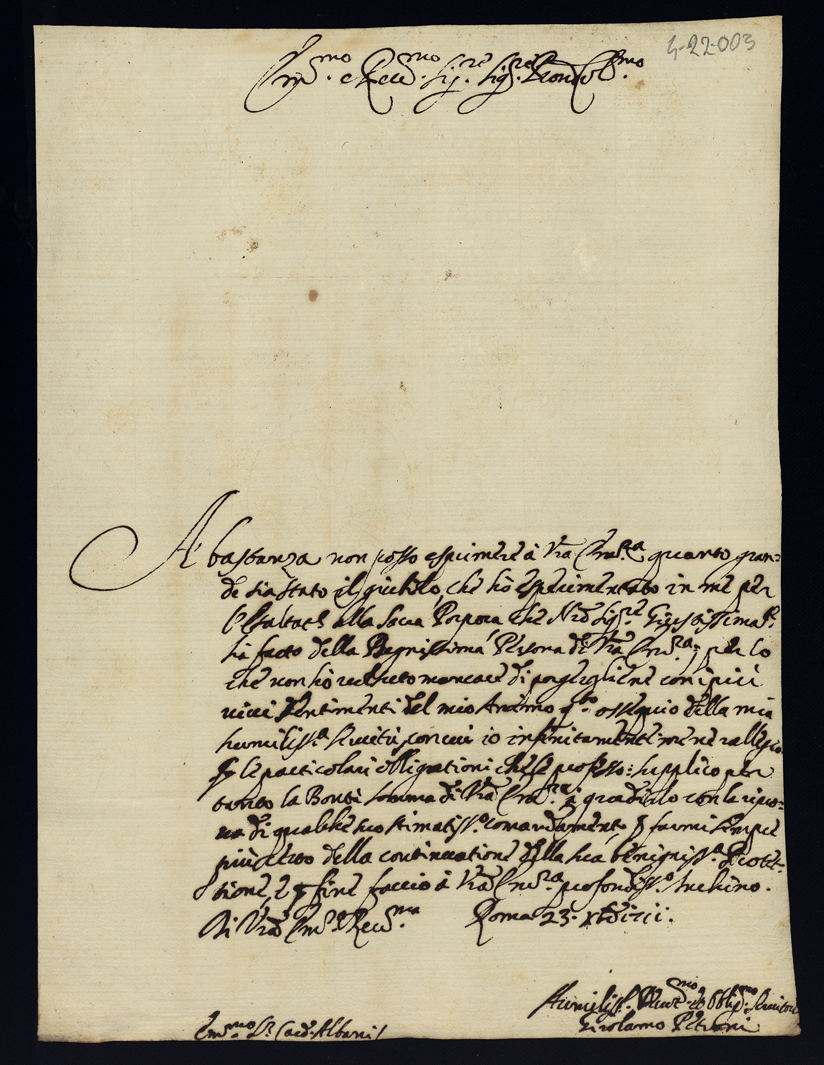 4-22-003
Em.mo e Rev.mo Sig.re Sig.re Pron Col.mo
A' bastanza non posso esprimere à Vra Em.za quanto gran=
de sia stato il giubilo, che hò esperimentato in me per
alla Sacra Porpora che N.ro Sig.re
hà fatto della Degnissima Persona di Vra Em.za; per lo
che non hò voluto mancare di porgegliene con i più
vivi sentimenti del mio Animo q.to ossequio della mia
humiliss.a servitù, con cui io infinitamente me ne rallegro
p le particolari obligationi che le professo: supplico per
tanto la Bontà somma di Vra Em.za à gradirlo con la
di qualche suo stimatiss.o comandamento p farmi sempre
più certo della continuatione della sua benigniss.a Protet=
tione, e p fine faccio à Vra Em.za profondiss.o inchino.
Di Vra Em.za e Rev.ma Roma 23. Xbre 1711.
Humiliss.o et Oblig.mo Servitore
Girolamo Petroni
Em.mo S.r Card. Albani